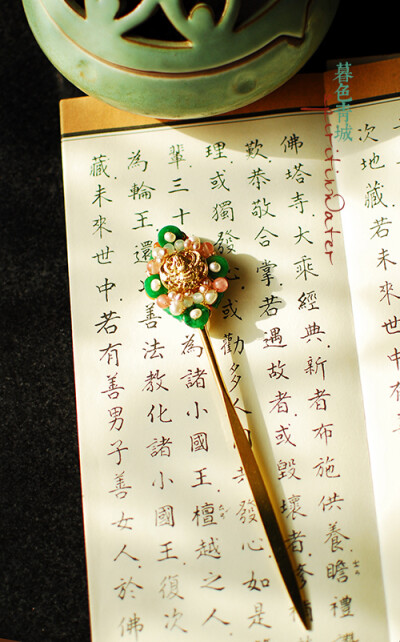 暮色青城
次地藏.若未來世中
佛塔寺大乘經典.新者布施供養.瞻禮
歎.恭敬合掌.若遇故者.或毀壞者.修補
理.或獨發心.或勸多人 發心.如是
輩.三十 為諸小國王.檀越之人
為輪王.還 善法教化諸小國王.復次
藏.未來世中.若有善男子善女人.於佛